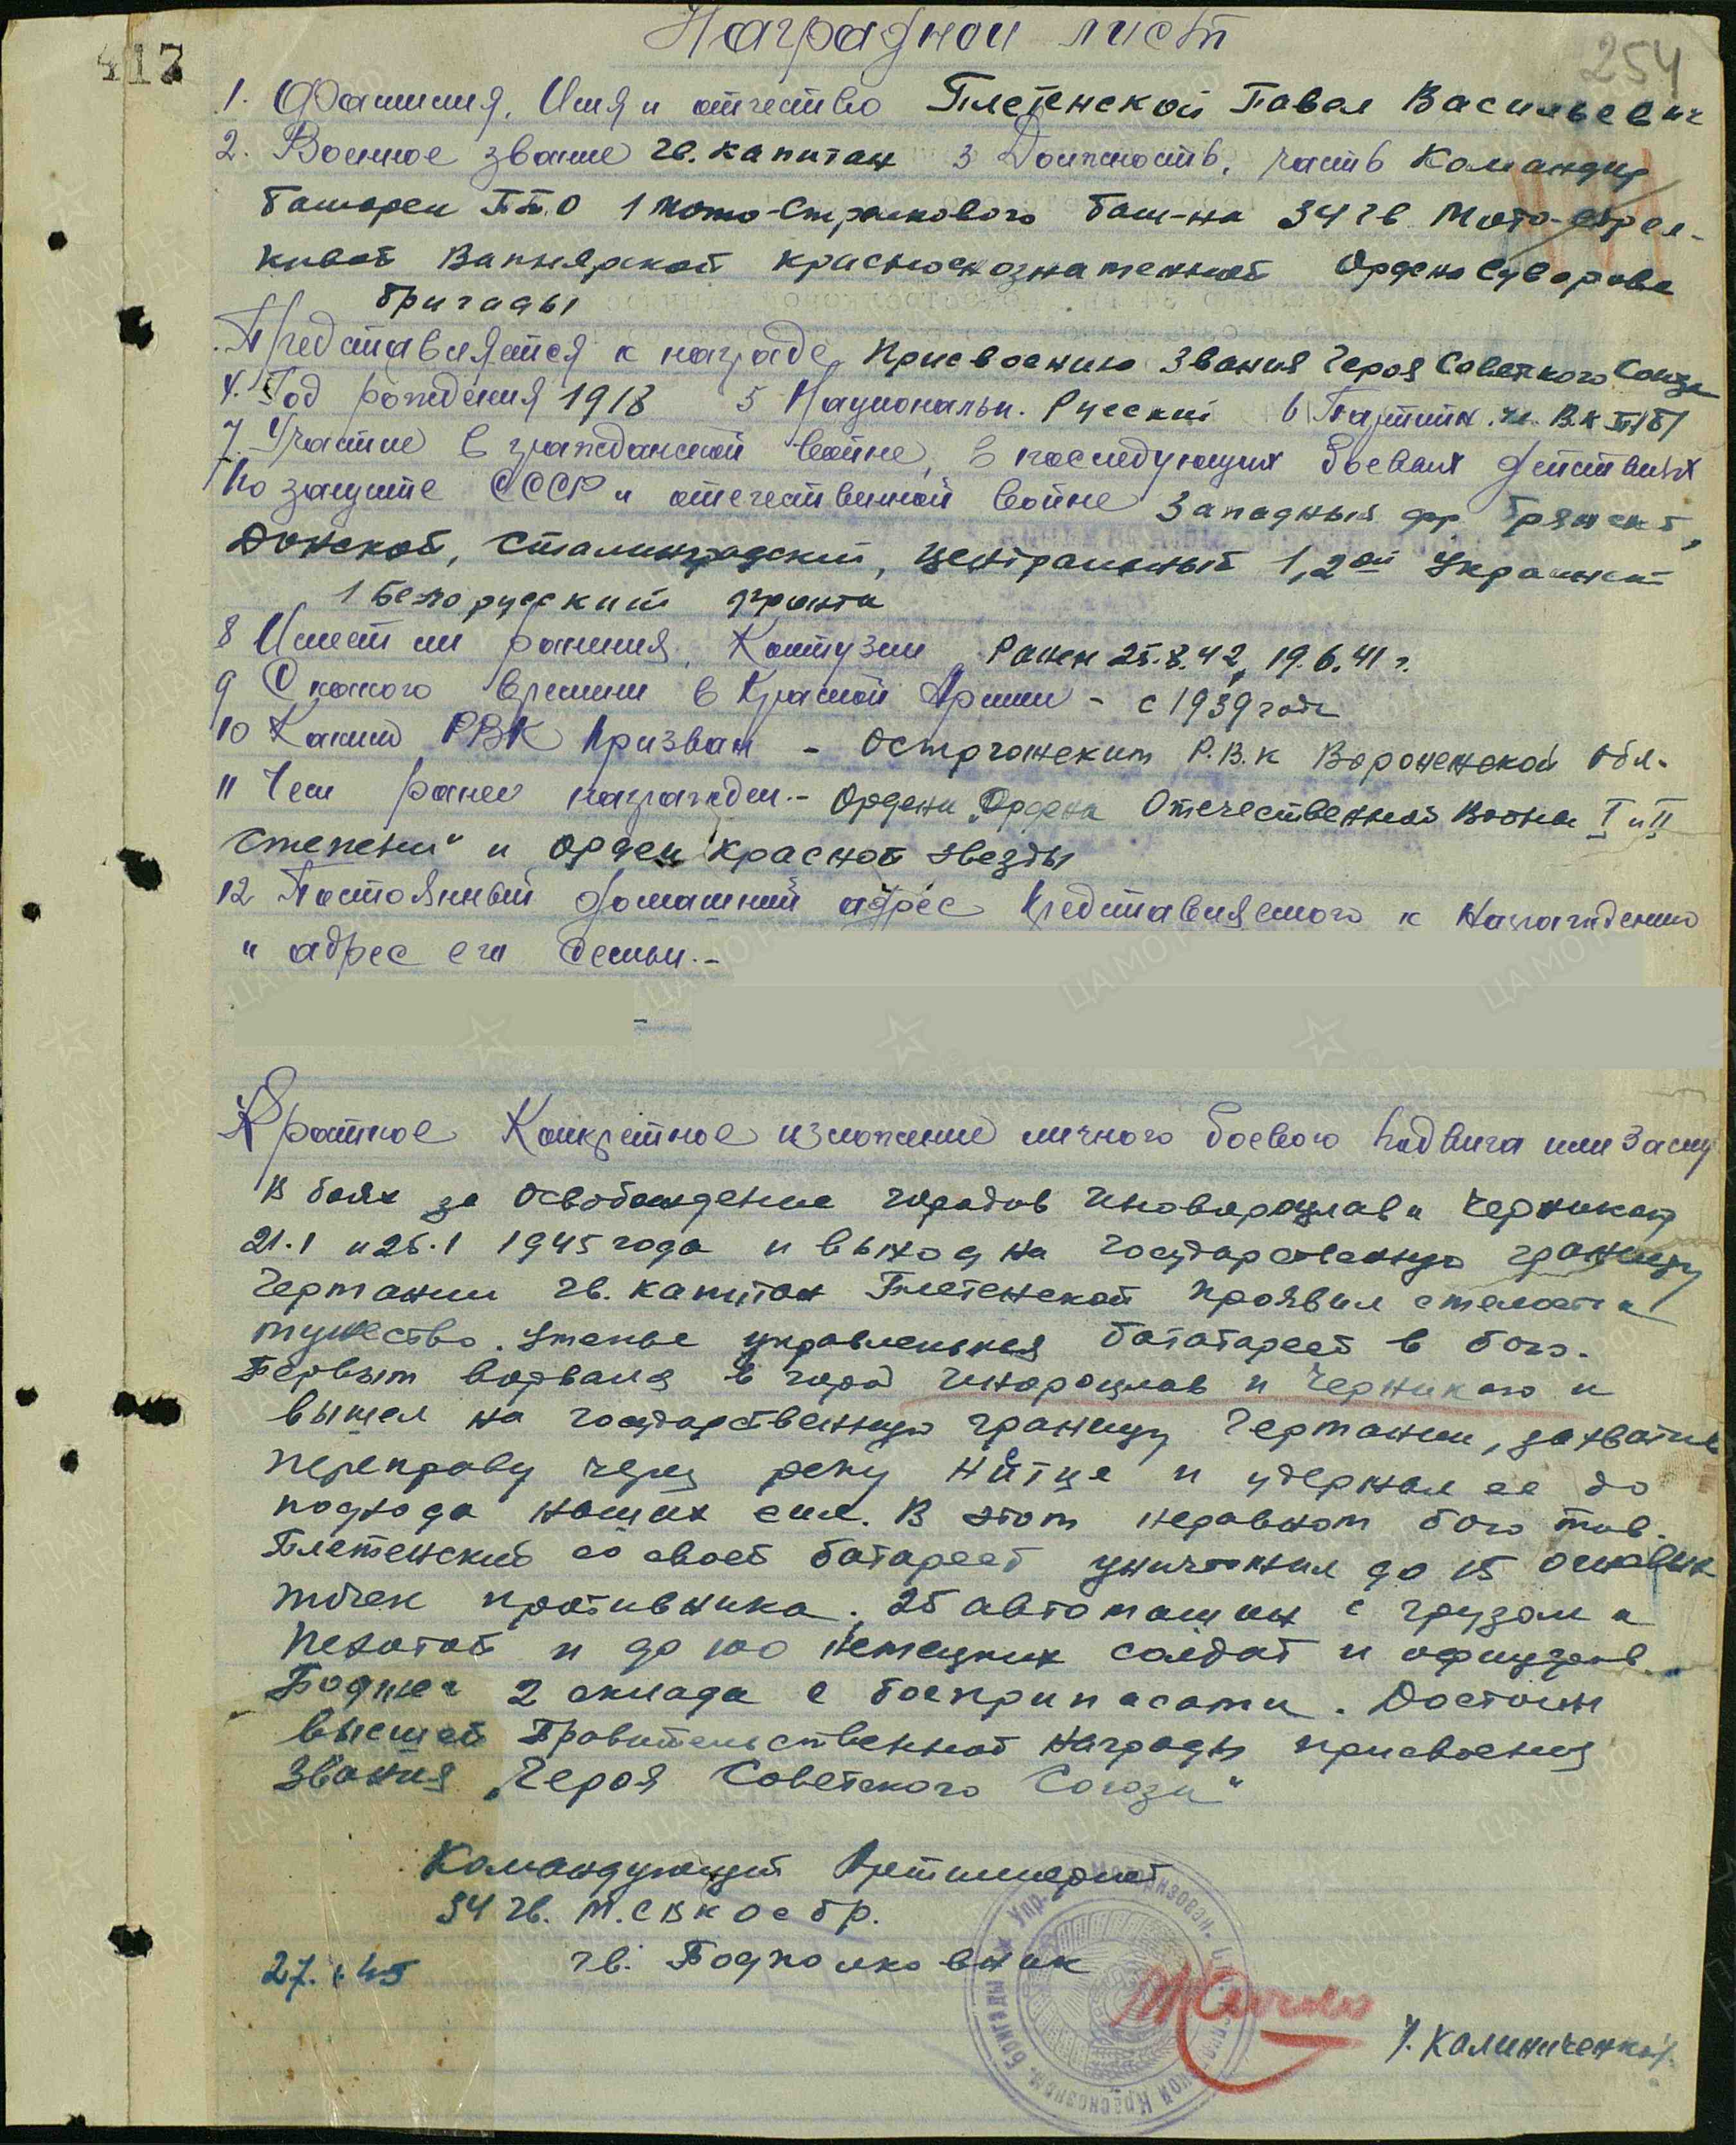 417
254
Наградной лист
1. Фамилия, Имя и отчество Плетенской Павел Васильевич
2. Военное звание гв. капитан 3 Должность, часть Командир
батареи ПТО 1 мото-стрелкового бат-на 34 гв Мото-стрел-
ковой Вапнярской краснознаменной Ордена Суворова
бригады
Представляется к награде Присвоению Звания Героя Советского Союза
4. Год рождения 1918 5 Национальн. Русский 6 Партийн. чл. ВКП/б/
7. Участие в гражданской войне, в последующих боевых действиях
по защите СССР и отечественной войне Западный фр Брянский,
Донской, Сталинградский, Центральный 1, 2ой Украинский
1 Белорусский фронта
8 Имеет ли ранения, Контузии Ранен 25.8.42, 19.6.41 г.
9 С какого времени в Красной Армии - с 1939 года
10 Каким РВК призван - Острогожским Р.В.К Воронежской обл.
11 Чем ранее награжден.- Ордени „Ордена Отечественной Войны I и II
степени“ и Орден Красной звезды
12 Постоянный домашний адрес представляемого к награждению
и адрес его семьи.-
Краткое Конкретное изложение личного боевого подвига или заслуг
В боях за освобождение городов Иновроцлав и Черникау
21.1 и 26.1 1945 года и выход на государственную границу
Германии гв. капитан Плетенской проявил смелость и
мужество. Уменье управления бататареей в бою.
Первым ворвался в город Иновроцлав и Черникау и
вышел на государственную границу Германии, захватив
переправу через реку Нитце и удержал ее до
подхода наших сил. В этом неравном бою тов.
Плетенский со своей батареей уничтожил до 15 огневых
точек противника, 25 автомашин с грузом и
пехотой и до 100 немецких солдат и офицеров.
Поджег 2 склада с боеприпасами. Достоин
высшей Правительственной награды присвоения
Звания „Героя Советского Союза“
Командующий Артиллерией
34 гв. М.СВКОсбр.
гв. Подполковник
27. 1 45
/. Калиниченко/.